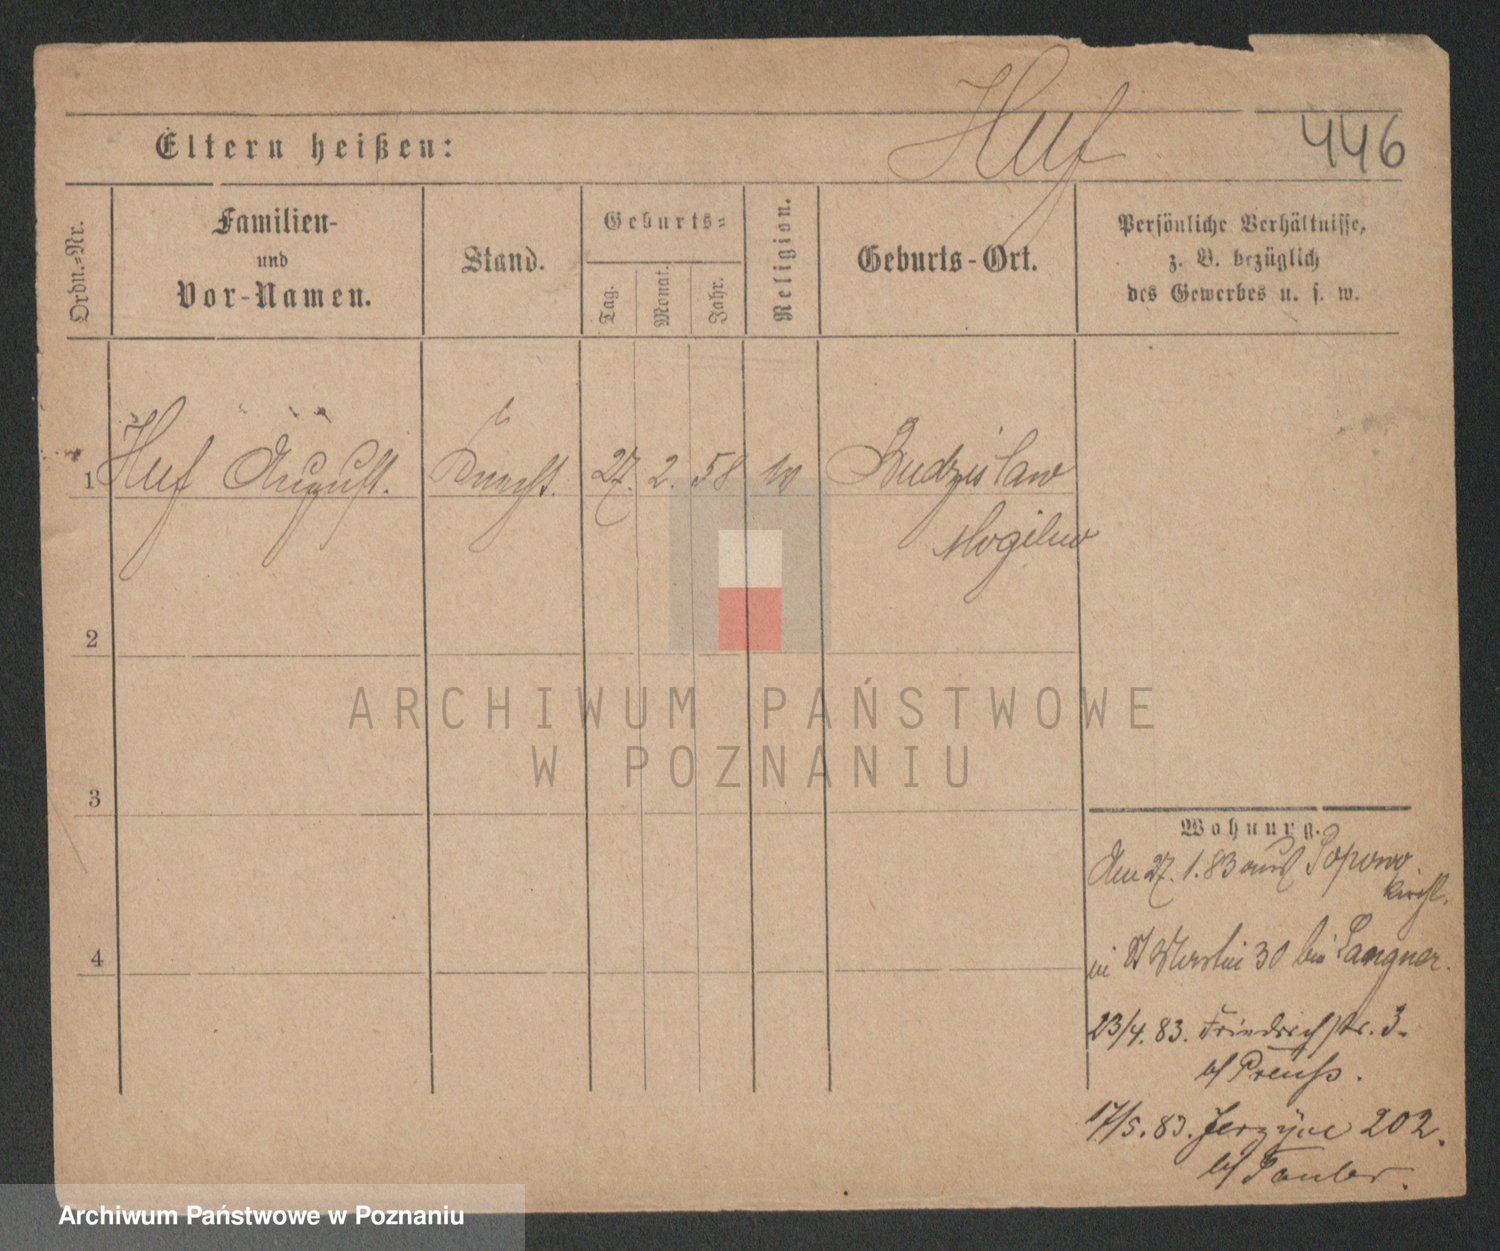 Huf
446
Eltern heißen:
Ordn.=Nr.
Familien-
und
Vor-Namen.
Stand.
Geburts=
Tag.
Monat.
Jahr.
Religion.
Geburts-Ort.
Persönliche Verhältnisse,
z. B. bezüglich
des Gewerbes u. s. w.
1 Huf August. Knecht. 27. 2. 58 Budzislaw
Mogilno
2
3
4
ARCHIWUM PAŃSTWOWE
W POZNANIU
Wohnung.
den 27. 1. 83 aus Popowo
kirchl.
in St Martin 30 bei Langner.
23/4. 83. Friedrichstr. 3.
b/ Preuß.
17/5. 83. Jerzyce 202.
b/ Tauber.
Archiwum Państwowe w Poznaniu